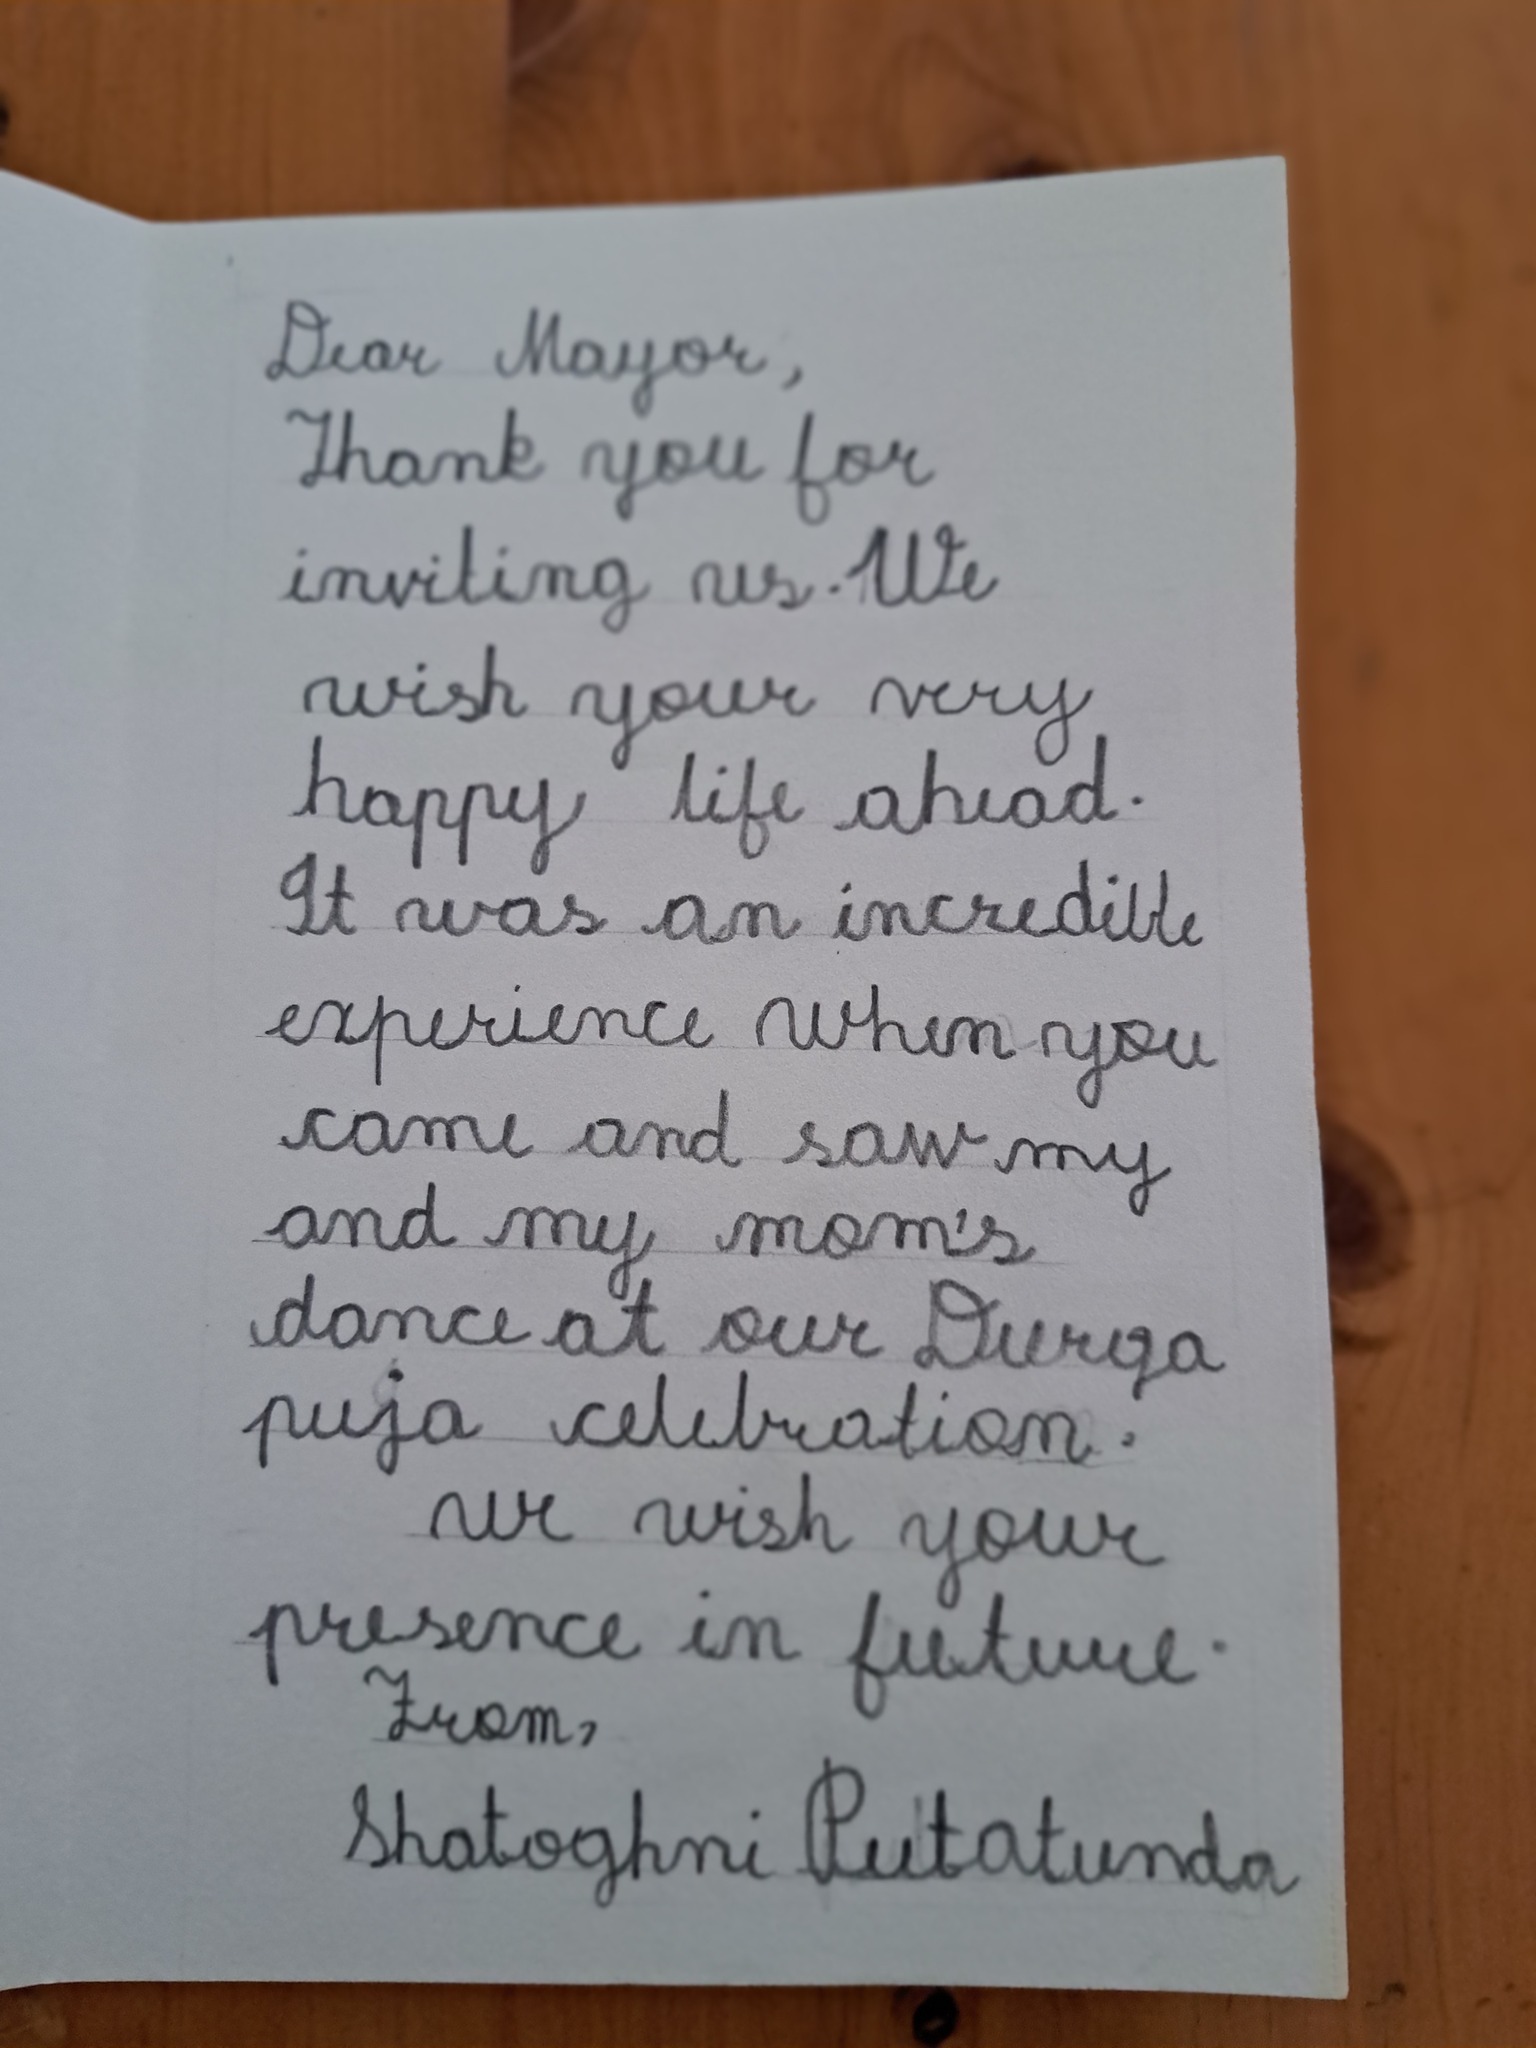 Dear Mayor,
Thank you for
inviting us. We
wish your very
happy life ahead.
It was an incredible
experience when you
came and saw my
and my mom's
dance at our Durga
puja celebration.
we wish your
presence in future.
From,
Shatoghni Putatunda